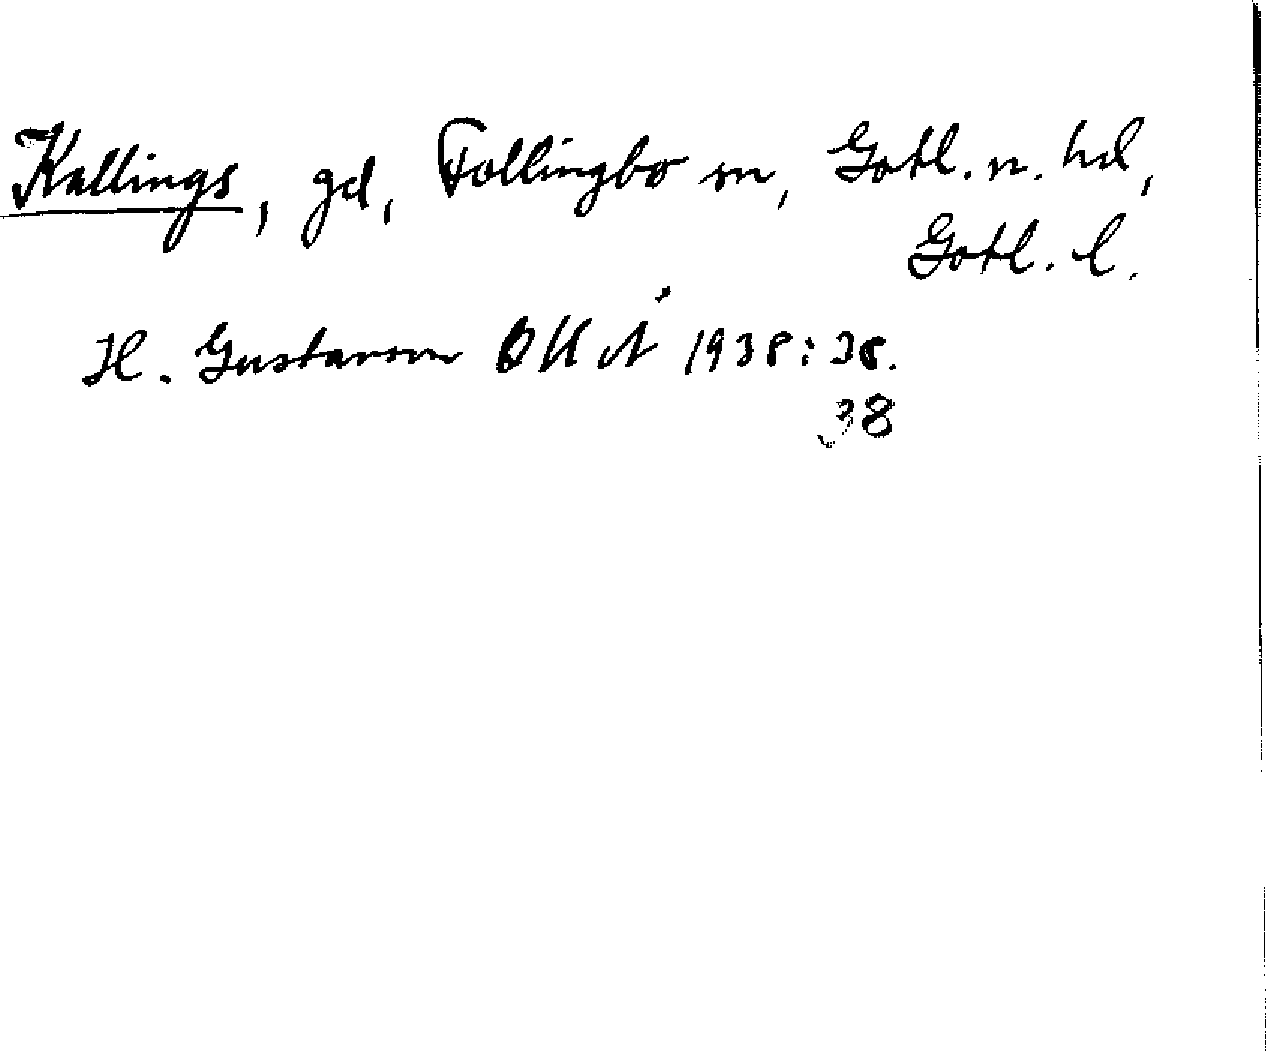 Kallings, gd, Follingbo sn, Gotl. n. hd,
Gotl. l.
H. Gustavson OUÅ 1938: 38.
38